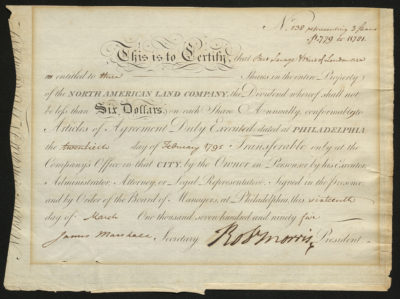 No. 138 representing 3 shares
8779 to 8781.
This is to Certify, that Bird Savage & Bird of London are
entitled to three Shares in the entire Property
of the NORTH AMERICAN LAND COMPANY; the Dividend whereof shall not
be less than Six Dollars, on each Share Annually, conformably to
Articles of Agreement Duly Executed; dated at PHILADELPHIA
the twentieth day of February 1795 Transferable only at the
Company's Office in that CITY, by the Owner in Person or by his Executor,
Administrator, Attorney, or Legal Representative. Signed in the presence
and by Order of the Board of Managers, at Philadelphia, this sixteenth
day of March One thousand seven hundred and ninety five
James Marshall Secretary. Robt Morris President